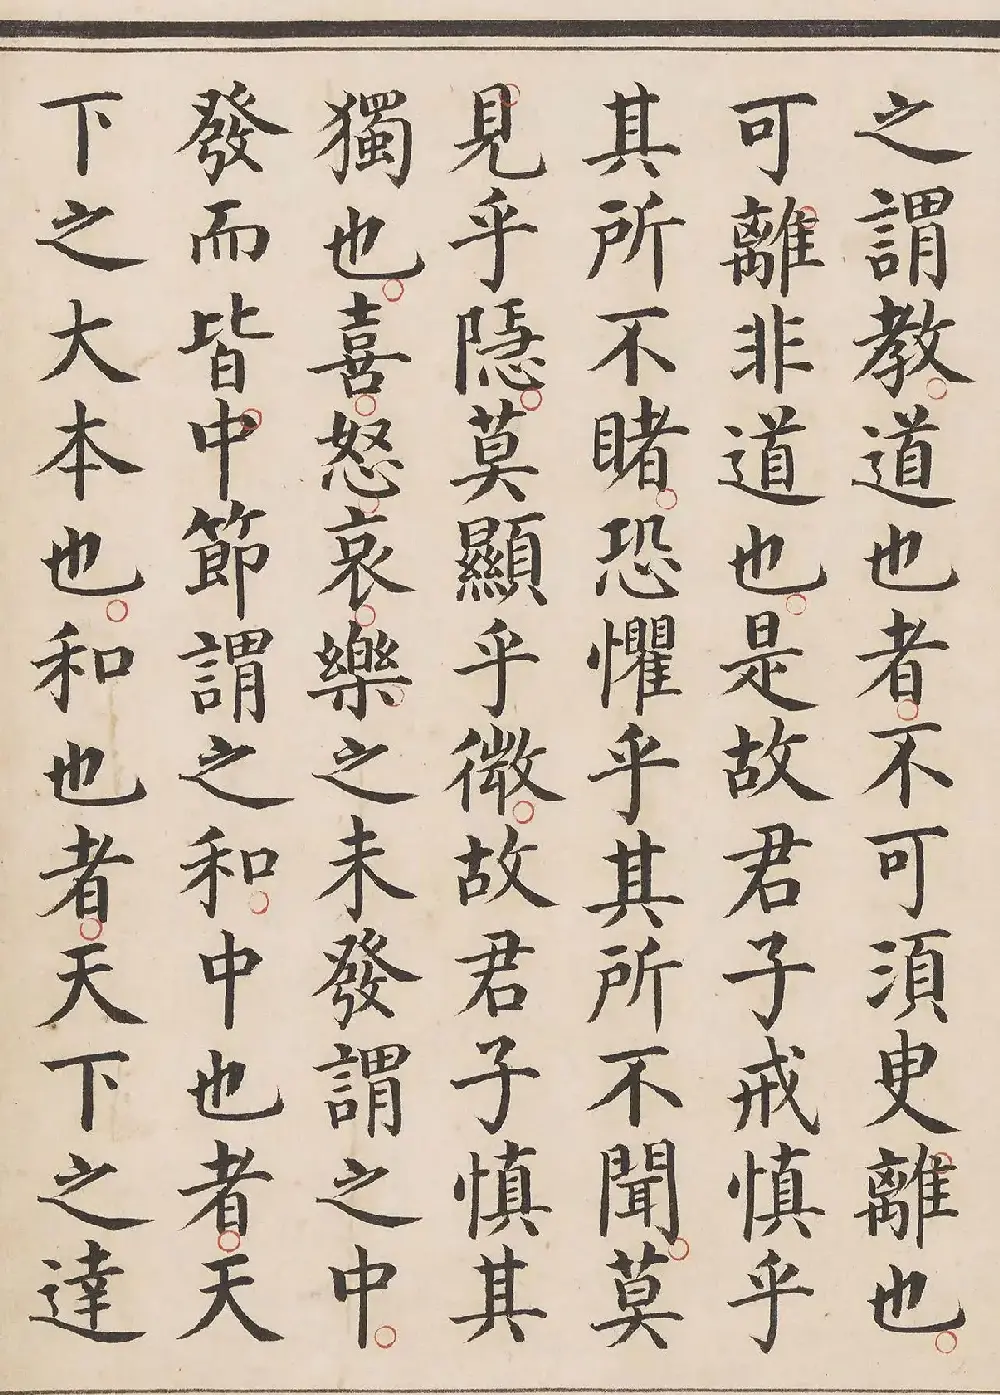 之謂教道也者不可須臾離也
可離非道也是故君子戒慎乎
其所不睹恐懼乎其所不聞莫
見乎隱莫顯乎微故君子慎其
獨也喜怒哀樂之未發謂之中
發而皆中節謂之和中也者天
下之大本也和也者天下之達